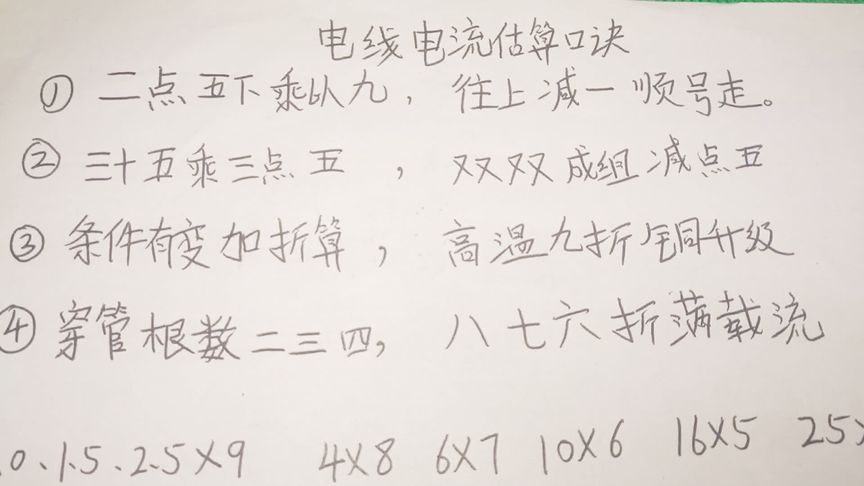 电线电流估算口诀
① 二点五下乘以九，往上减一顺号走。
② 三十五乘三点五，双双成组减点五
③ 条件有变加折算，高温九折铜升级
④ 穿管根数二三四，八七六折满载流
.0、1.5、2.5×9 4×8 6×7 10×6 16×5 25×